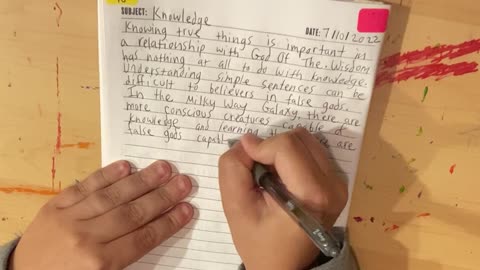 10
SUBJECT: Knowledge
DATE: 7/10/2022
Knowing true things is important in
a relationship with God Of The Wisdom
has nothing at all to do with knowledge.
Understanding simple sentences can be
difficult to believers in false gods.
In the Milky Way Galaxy, there are
more conscious creatures capable of
knowledge and learning than there are
false gods capabl